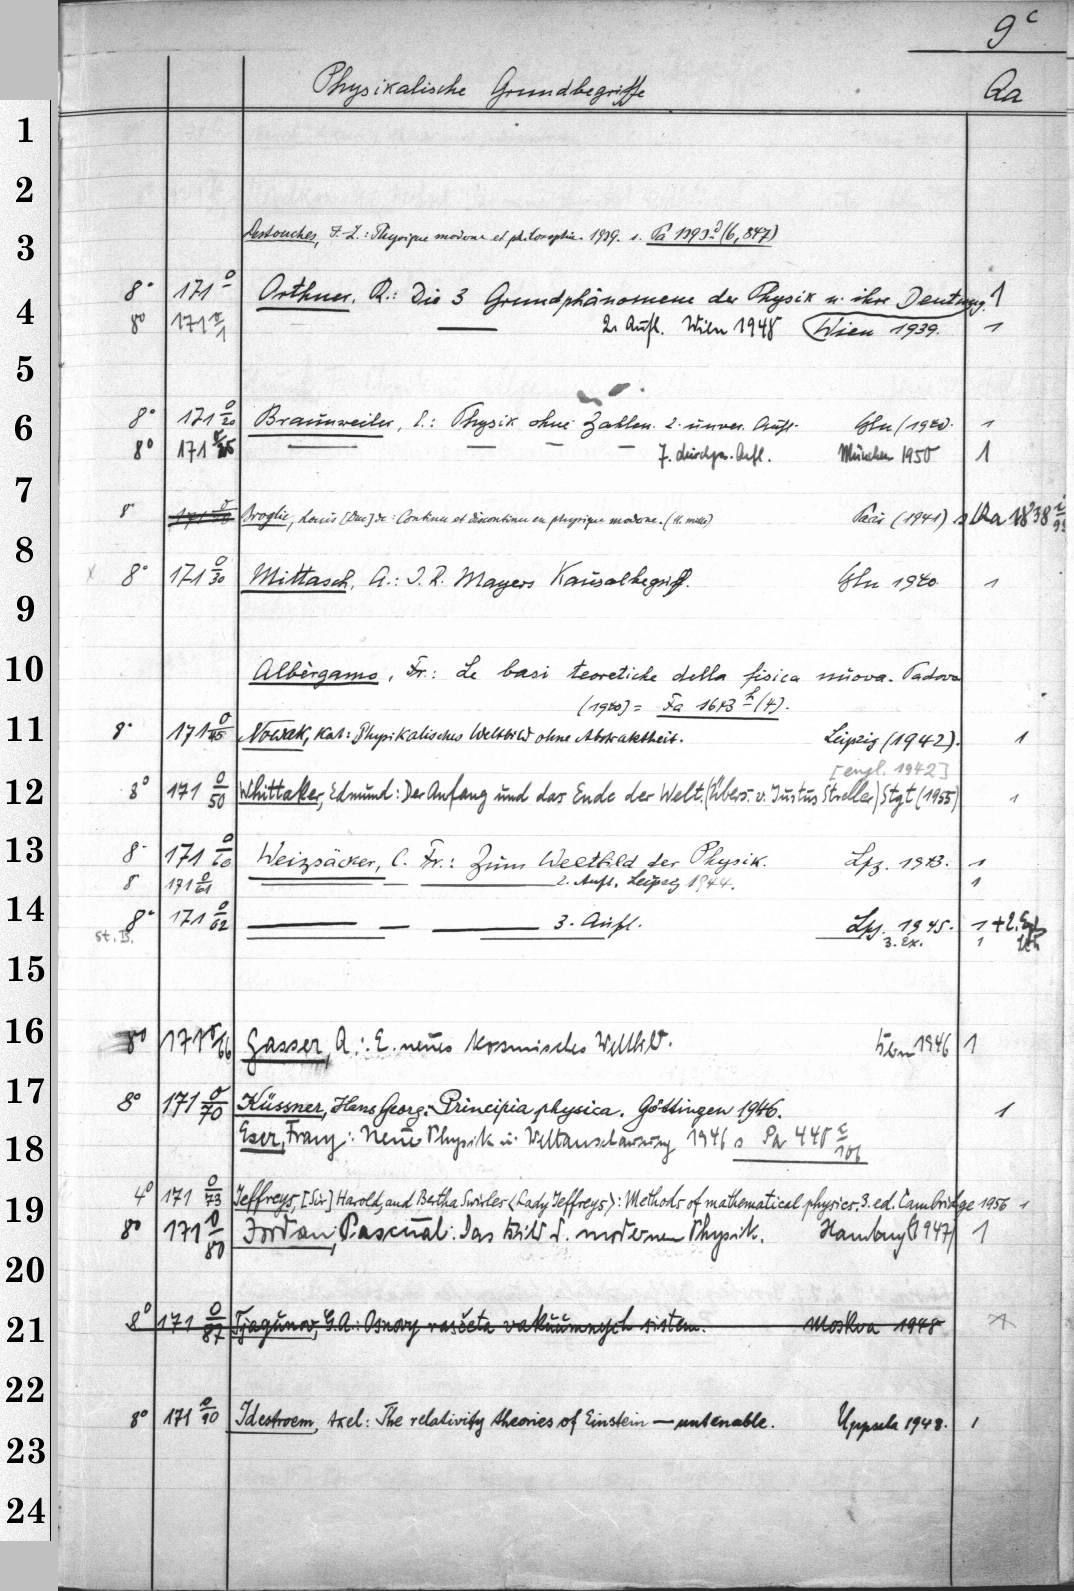 9 c
Physikalische Grundbegriffe Qa
1
2
3
Destouches, J.-L.: Physique moderne et philosophie. 1939. s. Pa 1393 (6,847)
8° 171 o Orthner, R.: Die 3 Grundphänomene der Physik u. ihre Deutung. 1
4
8° 171 o/1 — 2. Aufl. Wien 1948 Wien 1939. 1
5
8° 171 o/20 Braunweiler, E.: Physik ohne Zahlen. 2. unver. Aufl. Bln (1940). 1
6
8° 171 o/25 — — — — 7. durchges. Aufl. München 1950 1
7
8° Broglie, Louis [Duc] de: Continu et discontinu en physique moderne. Paris (1941) s. Qa 1838
8
8° 171 o/30 Mittasch, A.: J. R. Mayers Kausalbegriff. Bln 1940 1
9
10
Albèrgamo, Fr.: Le basi teoretiche della fisica nuova. Padova
(1940) = Fa 1673 (4).
11
8° 171 o/45 Nowak, Kat: Physikalisches Weltbild ohne Abstraktheit. Leipzig (1942). 1
[engl. 1942]
12
8° 171 o/50 Whittaker, Edmund: Der Anfang und das Ende der Welt. (Übers. v. Justus Streller) Stgt (1955) 1
13
8° 171 o/60 Weizsäcker, C. Fr.: Zum Weltbild der Physik. Lpz. 1943. 1
8° 171 o/61 — — — 2. Aufl. Leipzig 1944. 1
14
8° 171 o/62 — — — 3. Aufl. Lpz. 1945. 1 + 2. Ex.
St. B. 3. Ex. 1
15
16
8° 171 o/66 Gasser, A.: E. neues kosmisches Weltbild. 1946 1
17
8° 171 o/70 Küssner, Hans Georg: Principia physica. Göttingen 1946. 1
18
Eser, Franz: Neue Physik u. Weltanschauung 1946 s Pa 445 c/106
19
4° 171 o/73 Jeffreys, [Sir] Harold, and Bertha Swirles <Lady Jeffreys>: Methods of mathematical physics. 3. ed. Cambridge 1956 1
8° 171 o/80 Jordan, Pascual: Das Bild d. modernen Physik. Hamburg (1947) 1
20
21
8° 171 o/87 Tjagunov, G.A.: Osnovy rasčeta vakuumnych sistem. Moskva 1948
22
8° 171 o/90 Idestroem, Axel: The relativity theories of Einstein — untenable. Uppsala 1948. 1
23
24